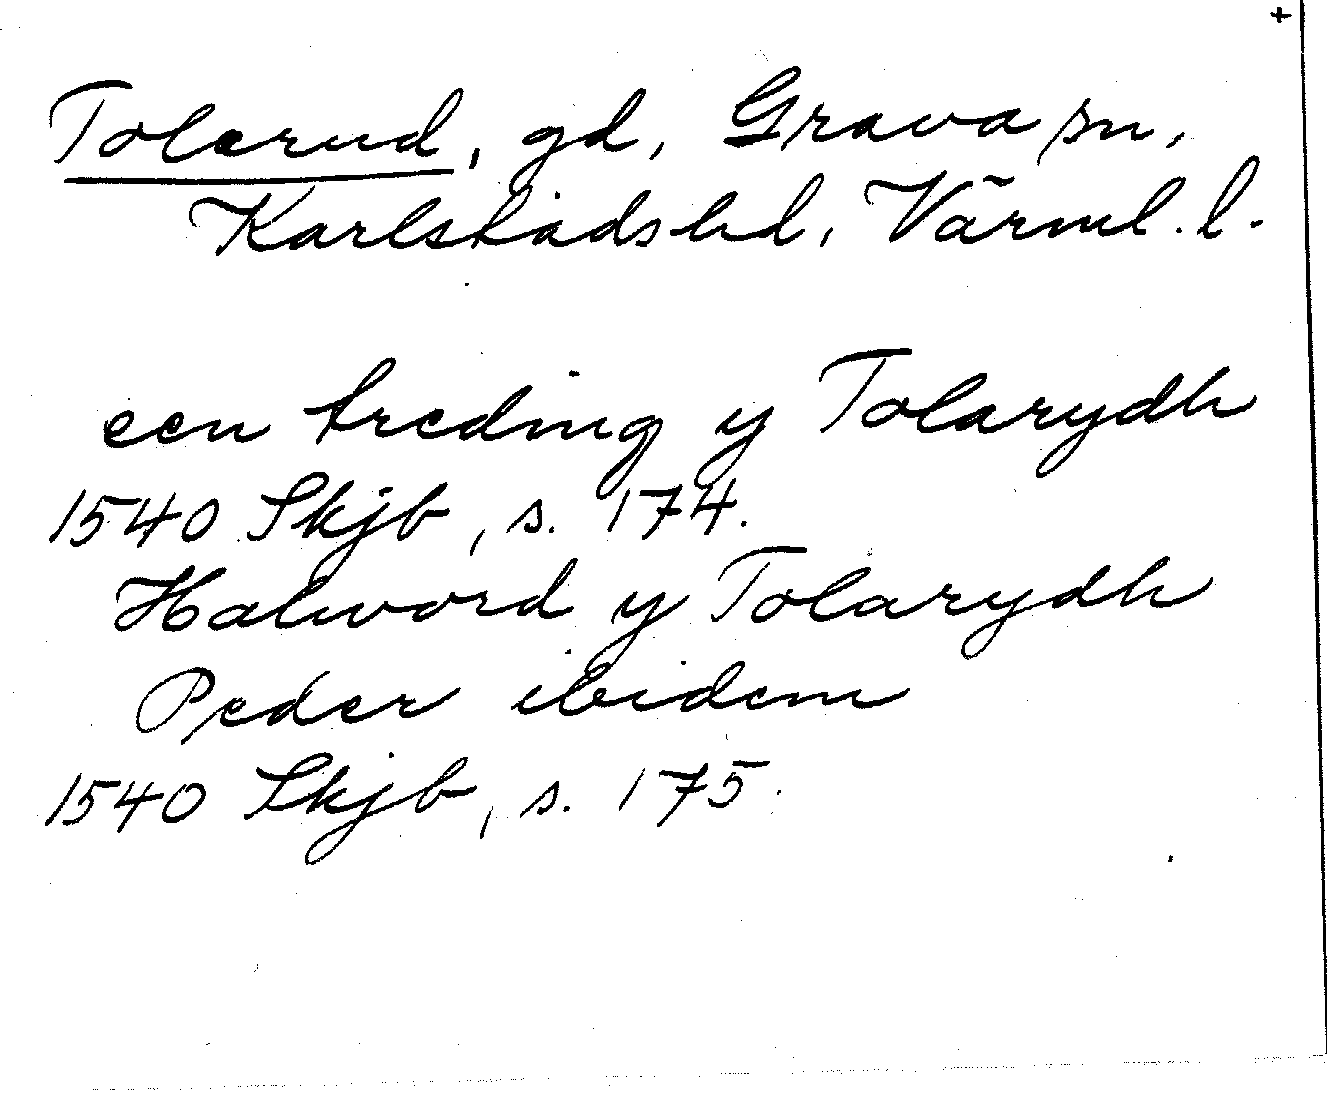 +
Tolerud, gd, Grava sn,
Karlstads hd, Värml. l.
een treding y Tolarydh
1540 Skjb, s. 174.
Halword y Tolarydh
Peder ibidem
1540 Skjb, s. 175.